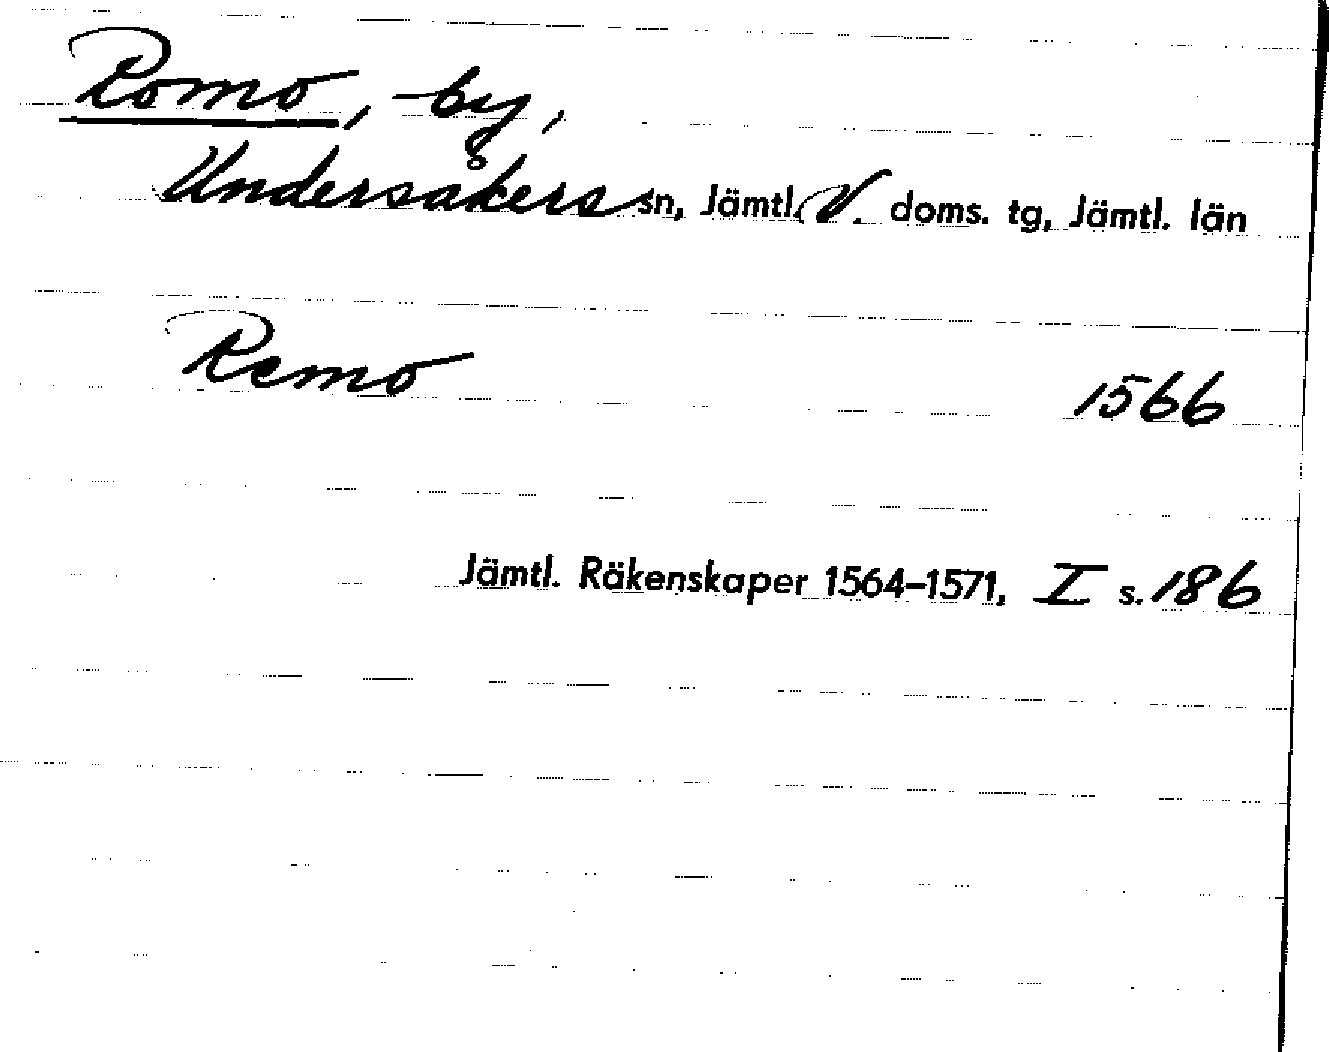 Romo, -by,
Undersåkers sn, Jämtl. V. doms. tg, Jämtl. län
Remo 1566
Jämtl. Räkenskaper 1564–1571, I s. 186